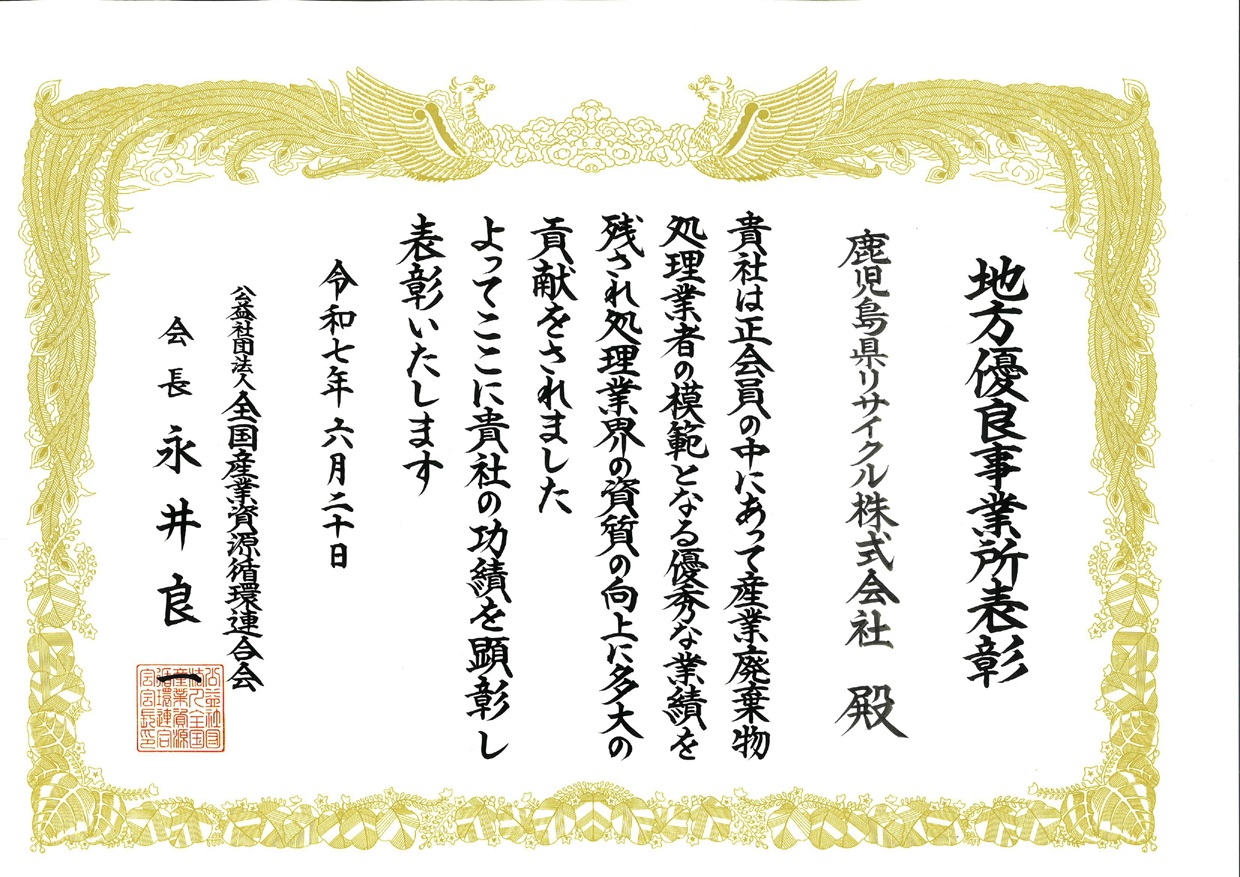 地方優良事業所表彰
鹿児島県リサイクル株式会社 殿
貴社は正会員の中にあって産業廃棄物
処理業者の模範となる優秀な業績を
残され処理業界の資質の向上に多大の
貢献をされました
よってここに貴社の功績を顕彰し
表彰いたします
令和七年六月二十日
公益社団法人全国産業資源循環連合会
会長 永井良一
公益社団
法人全国
産業資源
循環連合
会会長印